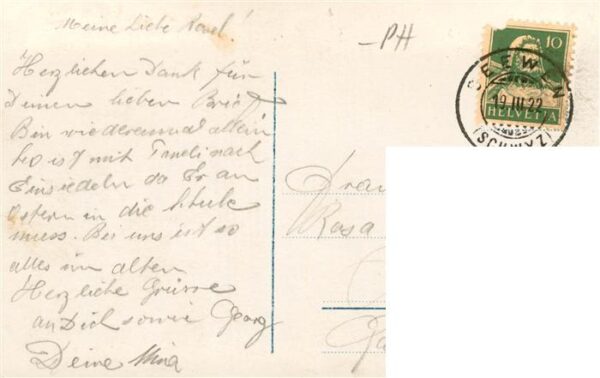 Meine Liebe Rosel!
Herzlichen Dank für
Deinen lieben Brief
Bin wiedereinmal allein
Leo ist mit Toneli nach
Einsiedeln da Er an
Ostern in die
muss. Bei uns ist so
alles im alten
Herzliche Grüsse
an Dich sowie Georg
Deine Mina
-PH
10
HELVETIA
SEEWEN
19.III.22
(SCHWYZ)
Frau
Rosa